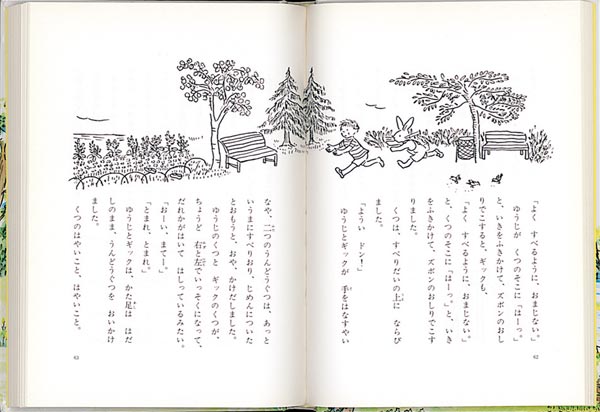 「よく すべるように、おまじない。」
ゆうじが くつのそこに「はーっ。」
と、いきをふきかけて、ズボンのおし
りでこすると、ギックも、
「よく すべるように、おまじない。」
と、くつのそこに「はーっ。」と、いき
をふきかけて、ズボンのおしりでこす
りました。
くつは、すべりだいの上に ならび
ました。
「ようい ドン！」
ゆうじとギックが 手をはなすやい
62
なや、二つのうんどうぐつは、あっと
いうまにすべりおり、じめんについた
とおもうと、おや、かけだしました。
ゆうじのくつと ギックのくつが、
ちょうど 右と左でいっそくになって、
だれかがはいて はしっているみたい。
「おーい、まてー。」
「とまれ、とまれ。」
ゆうじとギックは、かた足は はだ
しのまま、うんどうぐつを おいかけ
ました。
くつのはやいこと、はやいこと。
63